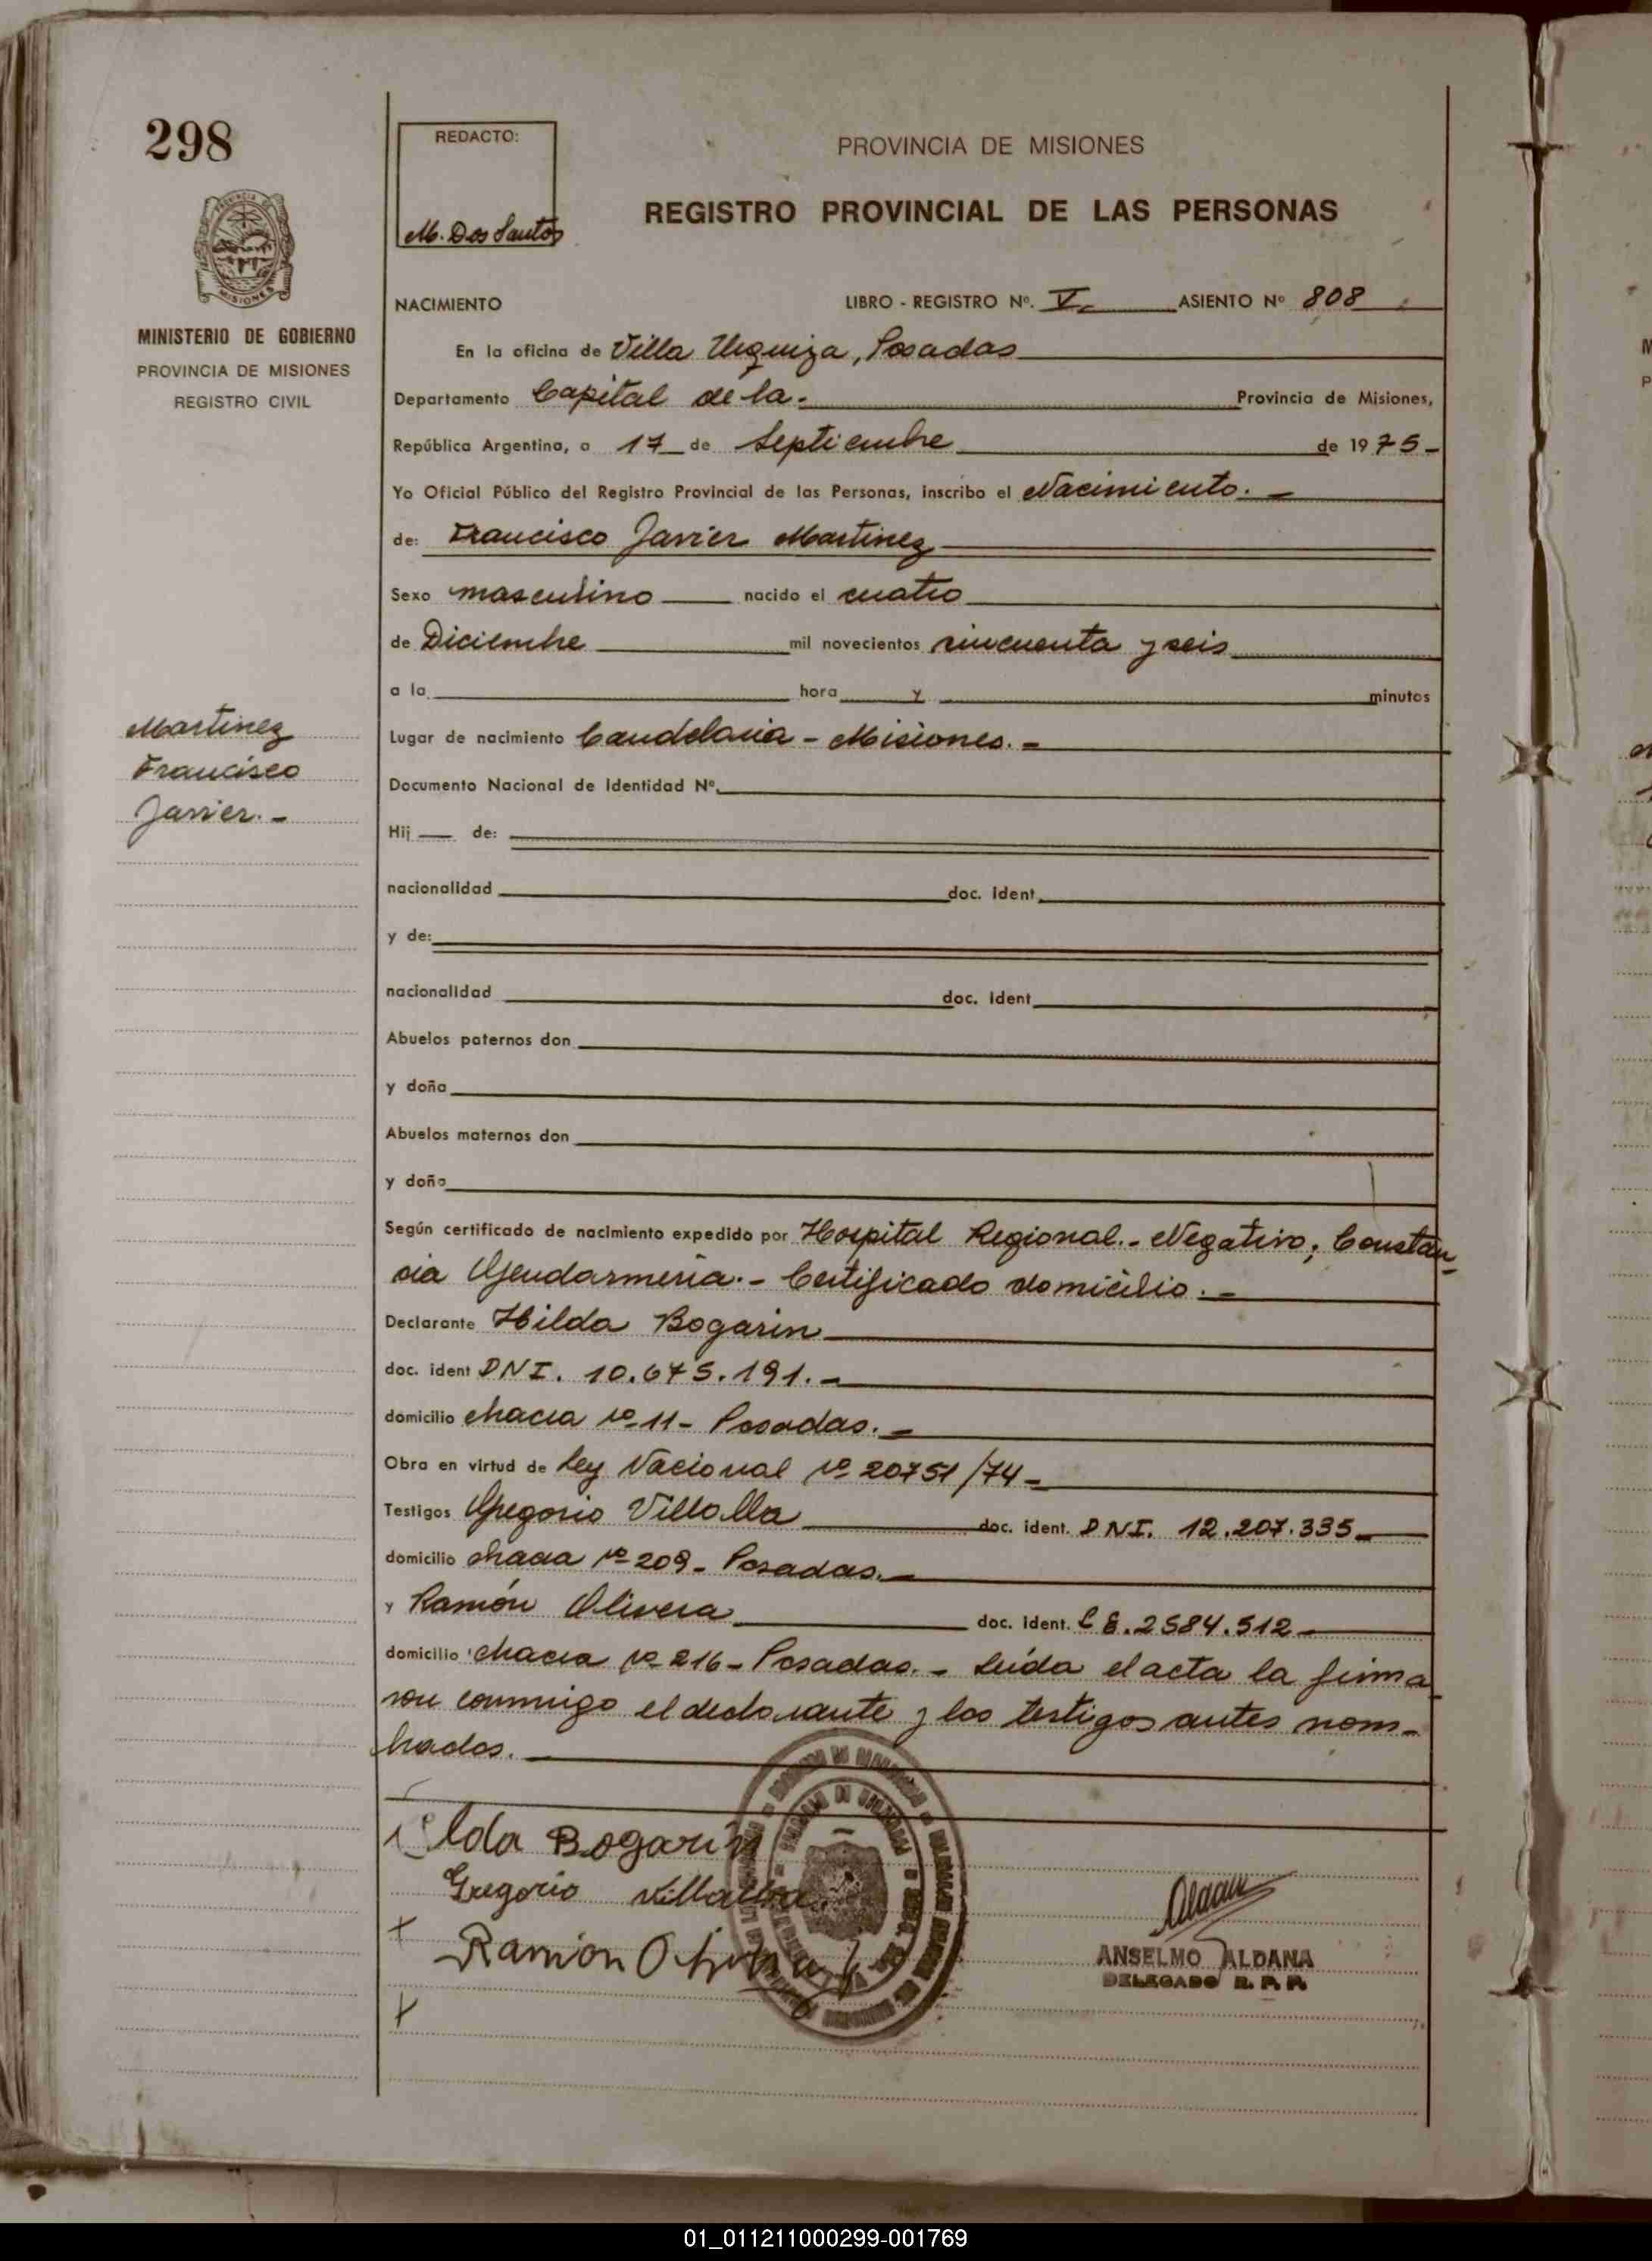 298
REDACTO:
M. Dos Santos
PROVINCIA DE MISIONES
REGISTRO PROVINCIAL DE LAS PERSONAS
MISIONES
MINISTERIO DE GOBIERNO
PROVINCIA DE MISIONES
REGISTRO CIVIL
NACIMIENTO LIBRO - REGISTRO Nº. V. ASIENTO Nº 808
En la oficina de Villa Urquiza, Posadas
Departamento Capital de la.- Provincia de Misiones,
República Argentina, a 17 de Septiembre de 1975-
Yo Oficial Público del Registro Provincial de las Personas, inscribo el Nacimiento.-
de: Francisco Javier Martinez
Sexo masculino nacido el cuatro
de Diciembre mil novecientos cincuenta y seis
a la hora y minutos
Martinez
Francisco
Javier.-
Lugar de nacimiento Candelaria - Misiones.-
Documento Nacional de Identidad Nº
Hij de:
nacionalidad doc. ident.
y de:
nacionalidad doc. ident
Abuelos paternos don
y doña
Abuelos maternos don
y doña
Según certificado de nacimiento expedido por Hospital Regional.- Negativo; Constan-
cia Gendarmeria.- Certificado domicilio.-
Declarante Hilda Bogarin
doc. ident DNI. 10.675.191.-
domicilio chacra nº 11- Posadas.-
Obra en virtud de Ley Nacional nº 20751/74-
Testigos Gregorio Villalba doc. ident. DNI. 12.207.335-
domicilio chacra nº 209- Posadas.-
y Ramón Olivera doc. ident. L E. 2584.512-
domicilio chacra nº 216- Posadas.- Leida el acta la firma
ron conmigo el declarante y los testigos antes nom-
brados.
Ilda Bogarin
Gregorio Villalba
Ramon
ANSELMO ALDANA
DELEGADO R. P. P.
01_011211000299-001769